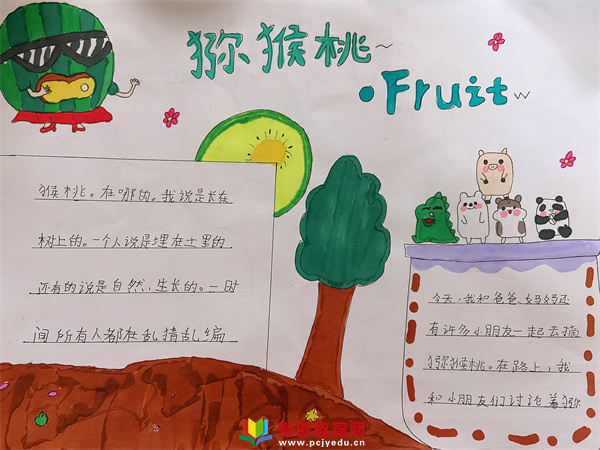 猕猴桃~
Fruit~
猴桃。在哪的。我说是长在
树上的。一个人说是埋在土里的
还有的说是自然、生长的。一时
间所有人都在乱猜乱编
今天,我和爸爸、妈妈还
有许多小朋友一起去摘
猕猴桃。在路上,我
和小朋友们讨论着猕
www.pcjyedu.cn